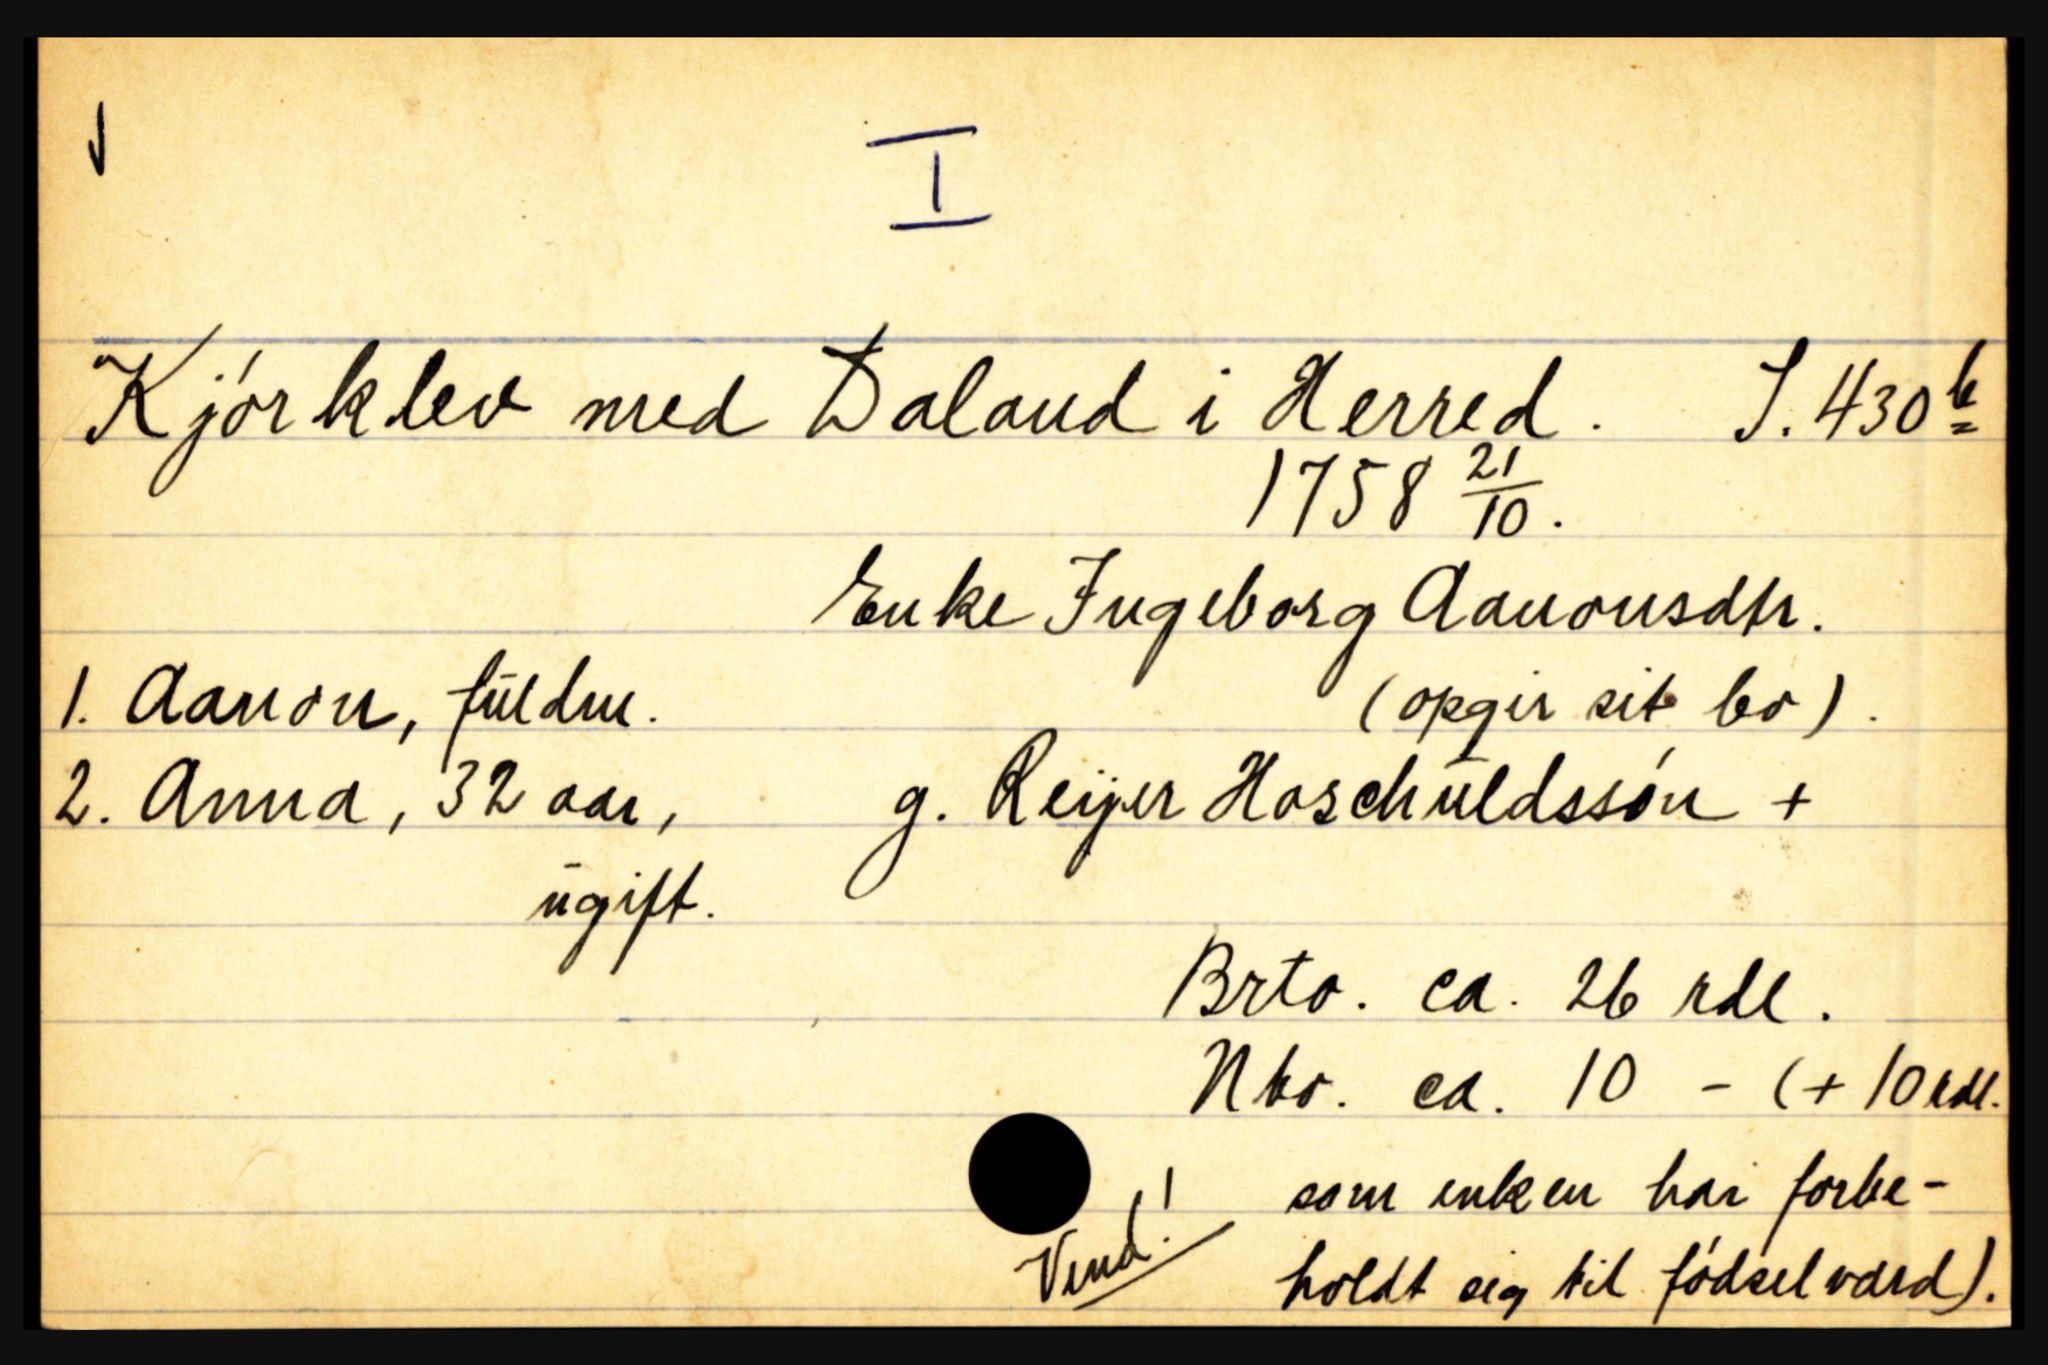 I
Kjórklev med Daland i Herred. S. 430 b
1758 21/10.
Enke Ingeborg Aanonsdtr.
1. Aanon, fuldm. (opgir sit bo).
2. Anna, 32 aar, g. Reijer Hoschuldssón +
ugift.
Brto. ca. 26 rdl.
Nto. ca. 10 - (+ 10 rdl.
som enken har forbe-
Vend! holdt sig til fódselvard).